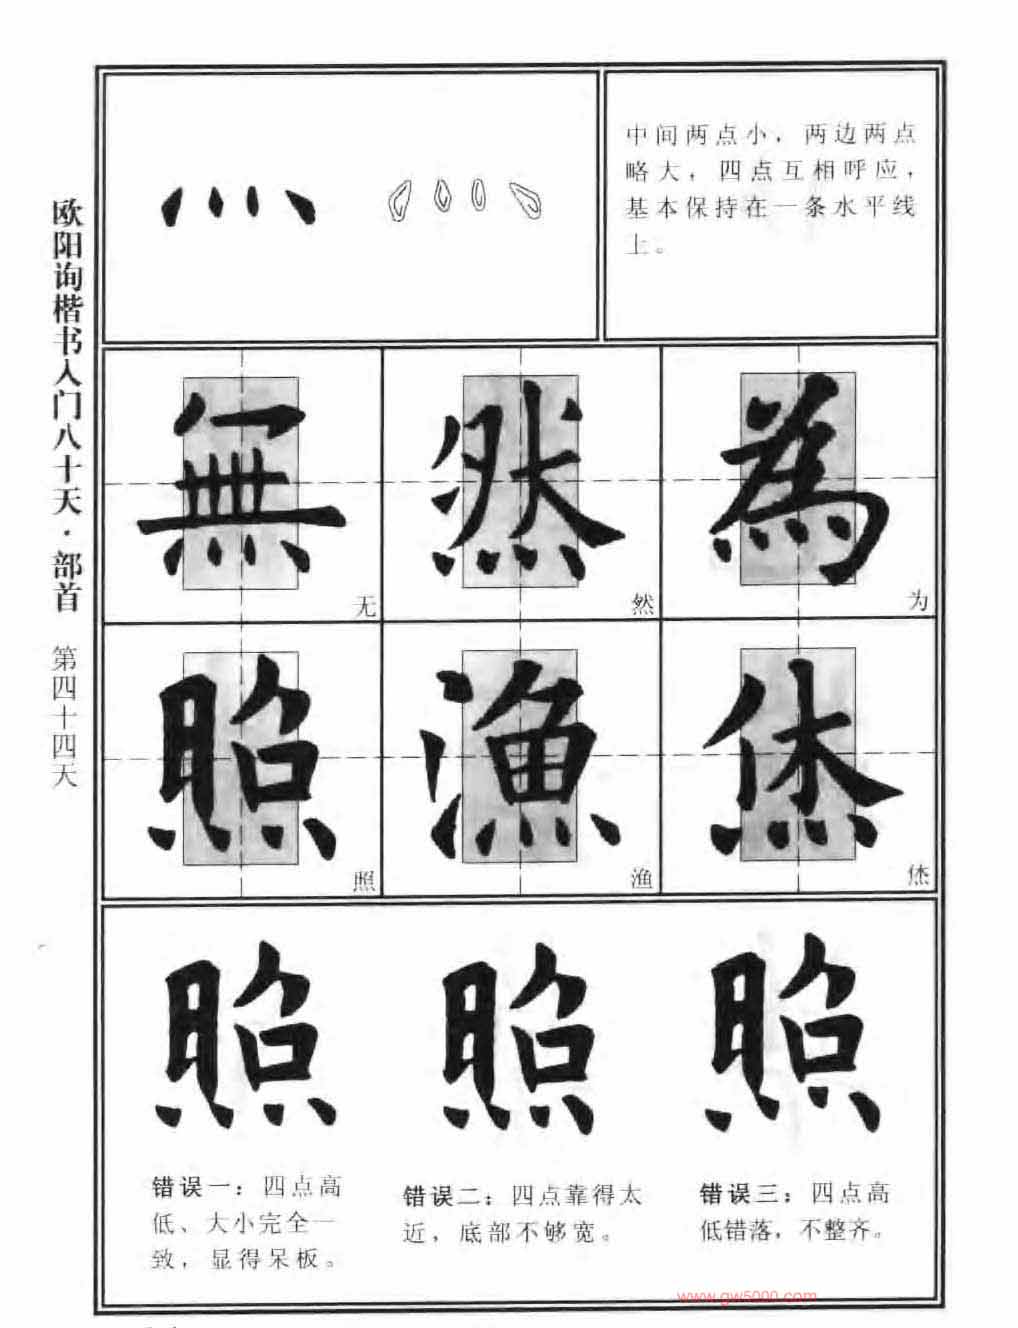 欧阳询楷书入门八十天·部首 第四十四天
灬
中间两点小，两边两点
略大，四点互相呼应，
基本保持在一条水平线
上。
無 然 為
无 然 为
照 漁 烋
照 渔 烋
照 照 照
错误一：四点高
低、大小完全一
致，显得呆板。
错误二：四点靠得太
近，底部不够宽。
错误三：四点高
低错落，不整齐。
www.gw5000.com